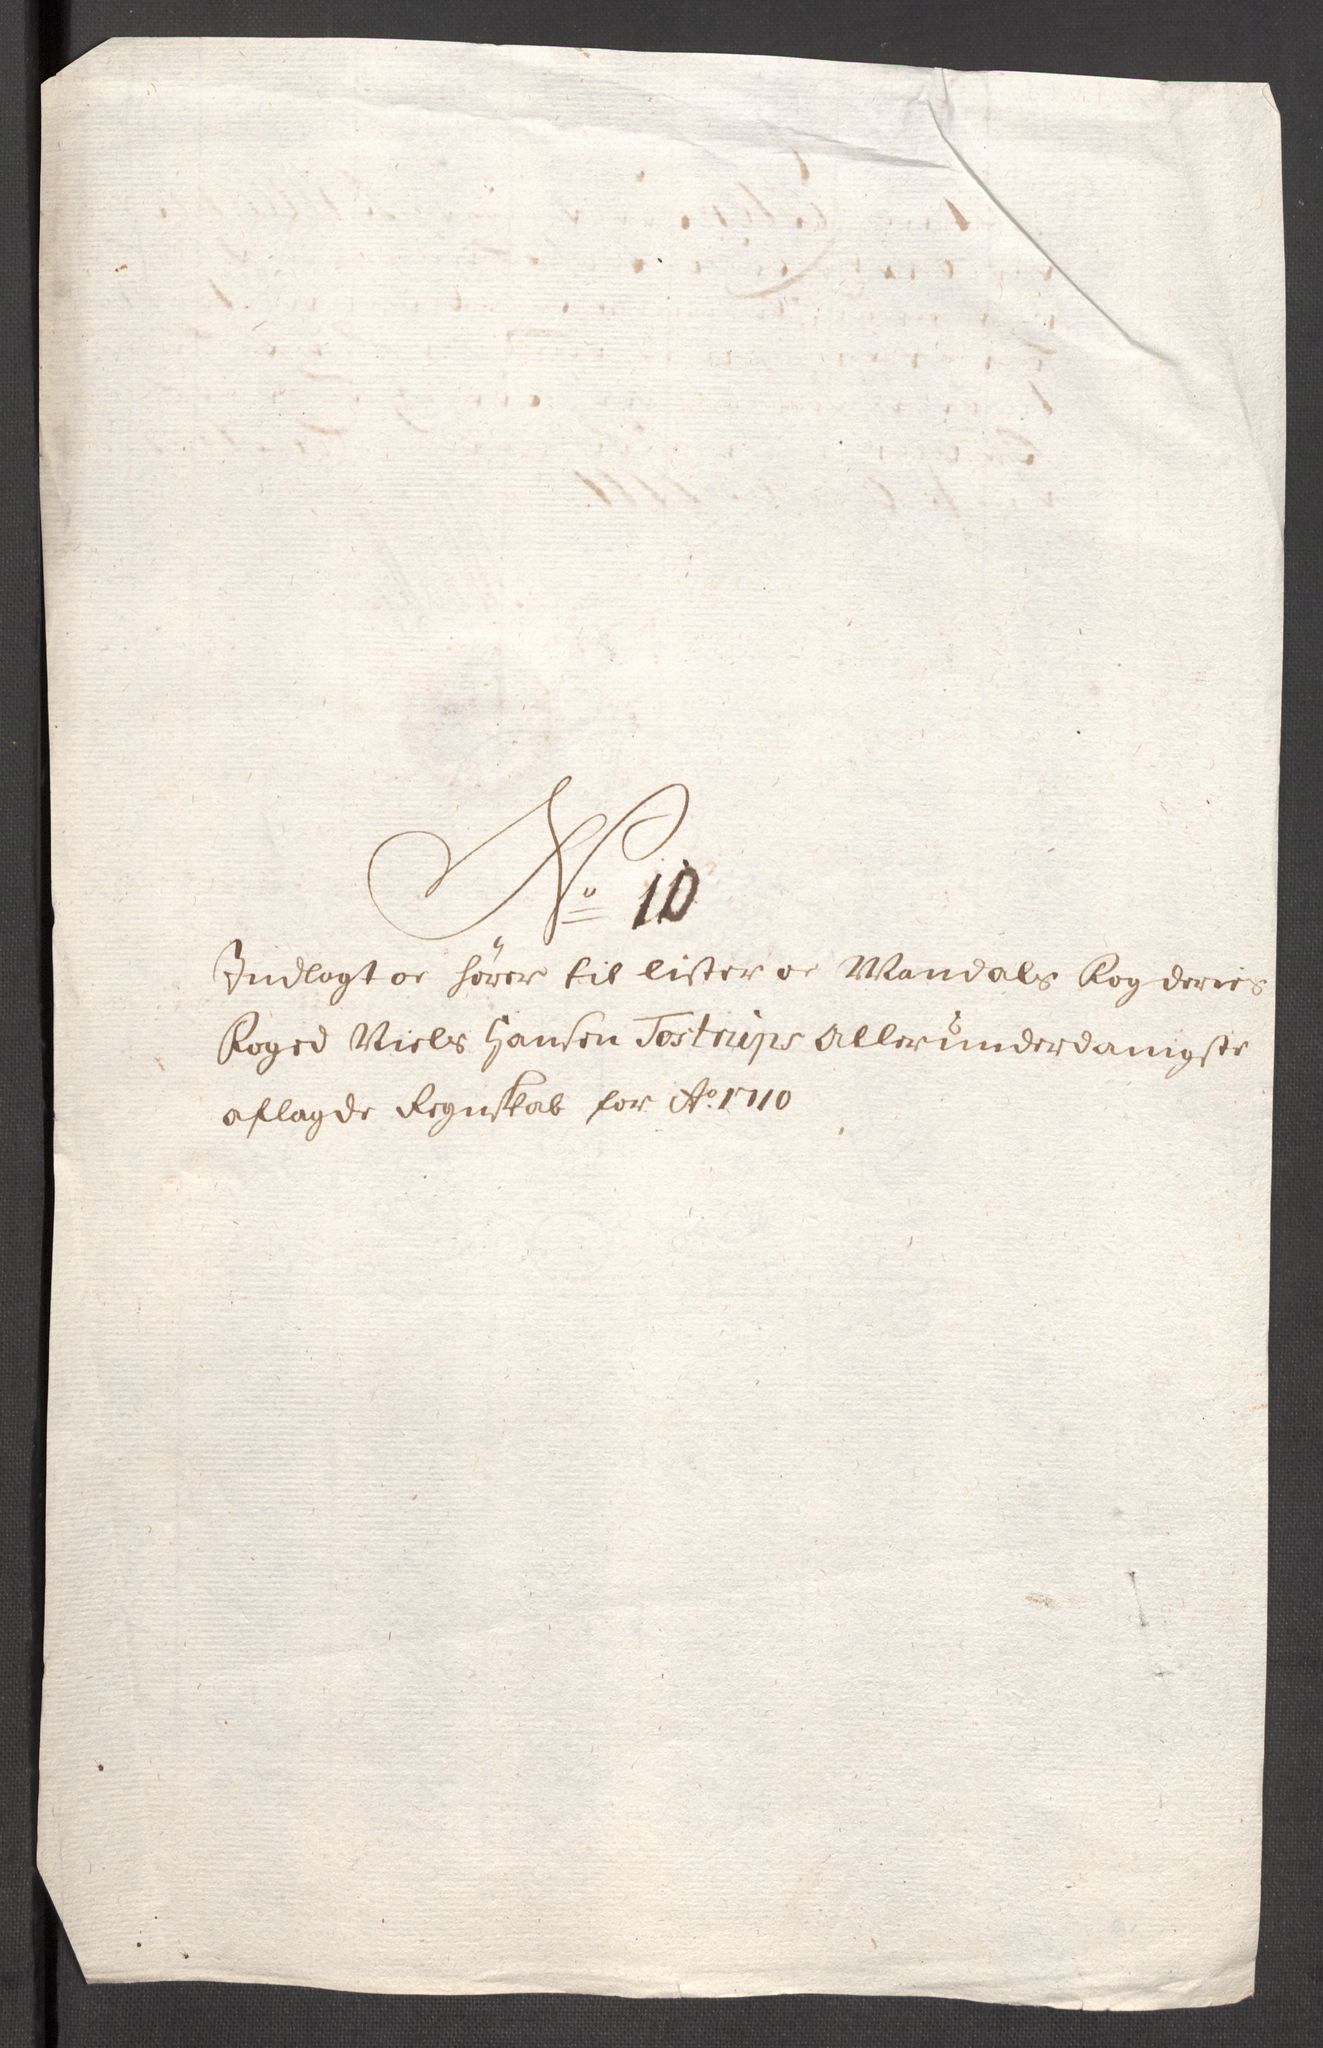 No 10
Indlagt oc hører til Lister oc Mandals Fogderies
Foged Niels Hansen Tostrups Allerunderdanigste
aflagde Regnskab for Ao. 1710